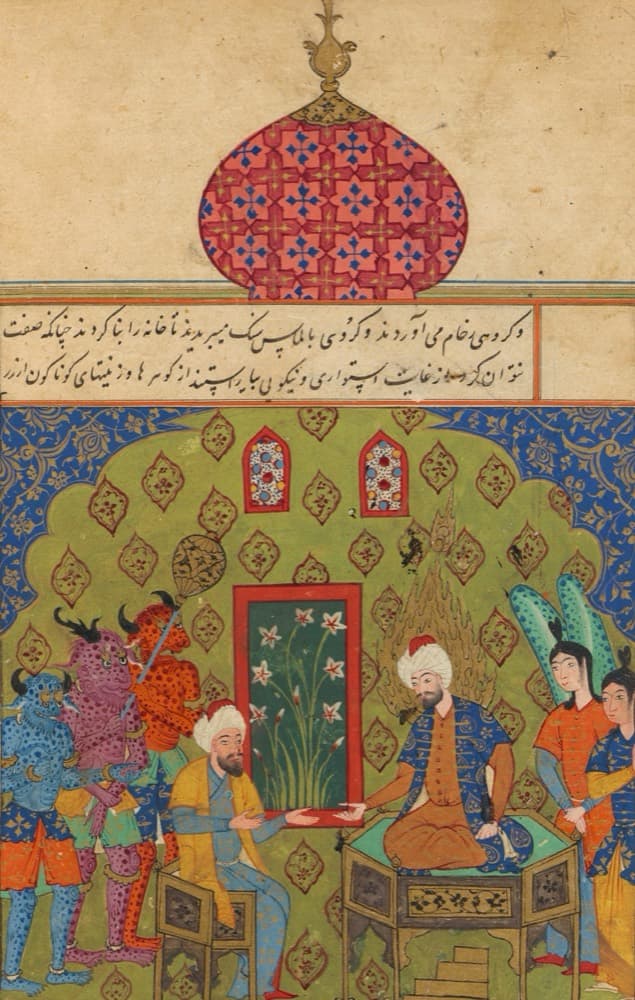 و کروهی رخام می آوردند و کروهی بالماس سنک میبریدند تا خانه را بنا کردند چنانکه صفت
نتوان کرد از غایت استواری و نیکویی بیاراستند از کوهرها و زینتهای کوناکون از زر